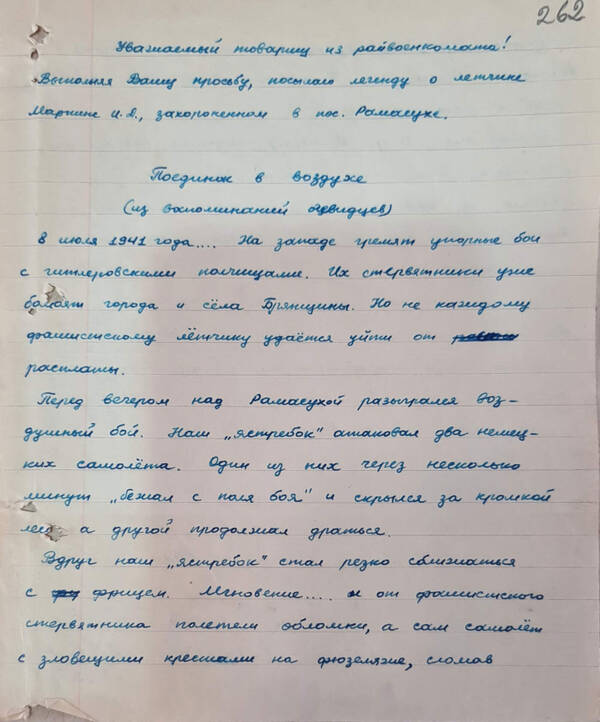 262
Уважаемый товарищ из райвоенкомата!
Выполняя Вашу просьбу, посылаю легенду о летчике
Маркине И.Д., захороненном в пос. Рамасухе.
Поединок в воздухе
(из воспоминаний очевидцев)
8 июля 1941 года.... На западе гремят упорные бои
с гитлеровскими полчищами. Их стервятники уже
бомбят города и сёла Брянщины. Но не каждому
фашистскому лётчику удаётся уйти от
расплаты.
Перед вечером над Рамасухой разыгрался воз-
душный бой. Наш „ястребок" атаковал два немец-
ких самолёта. Один из них через несколько
минут „бежал с поля боя" и скрылся за кромкой
леса а другой продолжал драться.
Вдруг наш „ястребок" стал резко сближаться
с фрицем. Мгновение.... и от фашистского
стервятника полетели обломки, а сам самолёт
с зловещими крестами на фюзеляже, сломав